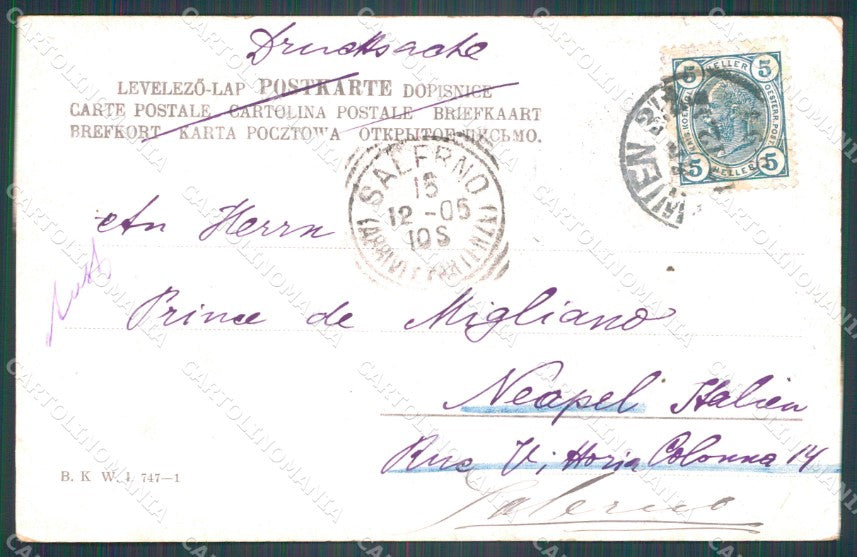 Drucksache
LEVELEZŐ-LAP POSTKARTE DOPISNICE
CARTE POSTALE CARTOLINA POSTALE BRIEFKAART
BREFKORT KARTA POCZTOWA ОТКРЫТОЕ ПИСЬМО.
5 HELLER 5
5 HELLER 5
WIEN
SALERNO
15
12-05
10S
An Herrn
Prince de Migliano
Neapel Italien
Rue Vittoria Colonna 14
Salerno
B. K. W. I. 747-1
CARTOLINOMANIA